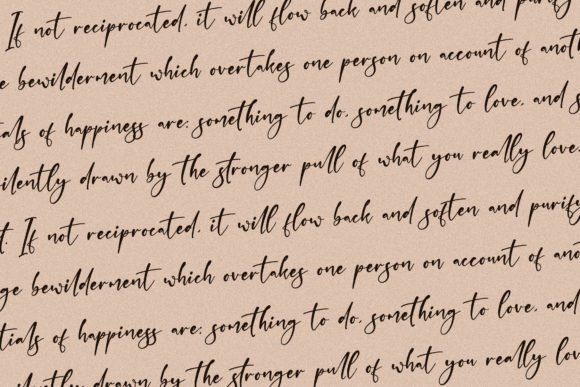 If not reciprocated, it will flow back and soften and purify
bewilderment which overtakes one person on account of anoth
tials of happiness are: something to do, something to love, and s
ilently drawn by the stronger pull of what you really love.
t. If not reciprocated, it will flow back and soften and purify
ge bewilderment which overtakes one person on account of ano
tials of happiness are: something to do, something to love, and
ilently drawn by the stronger pull of what you really lov